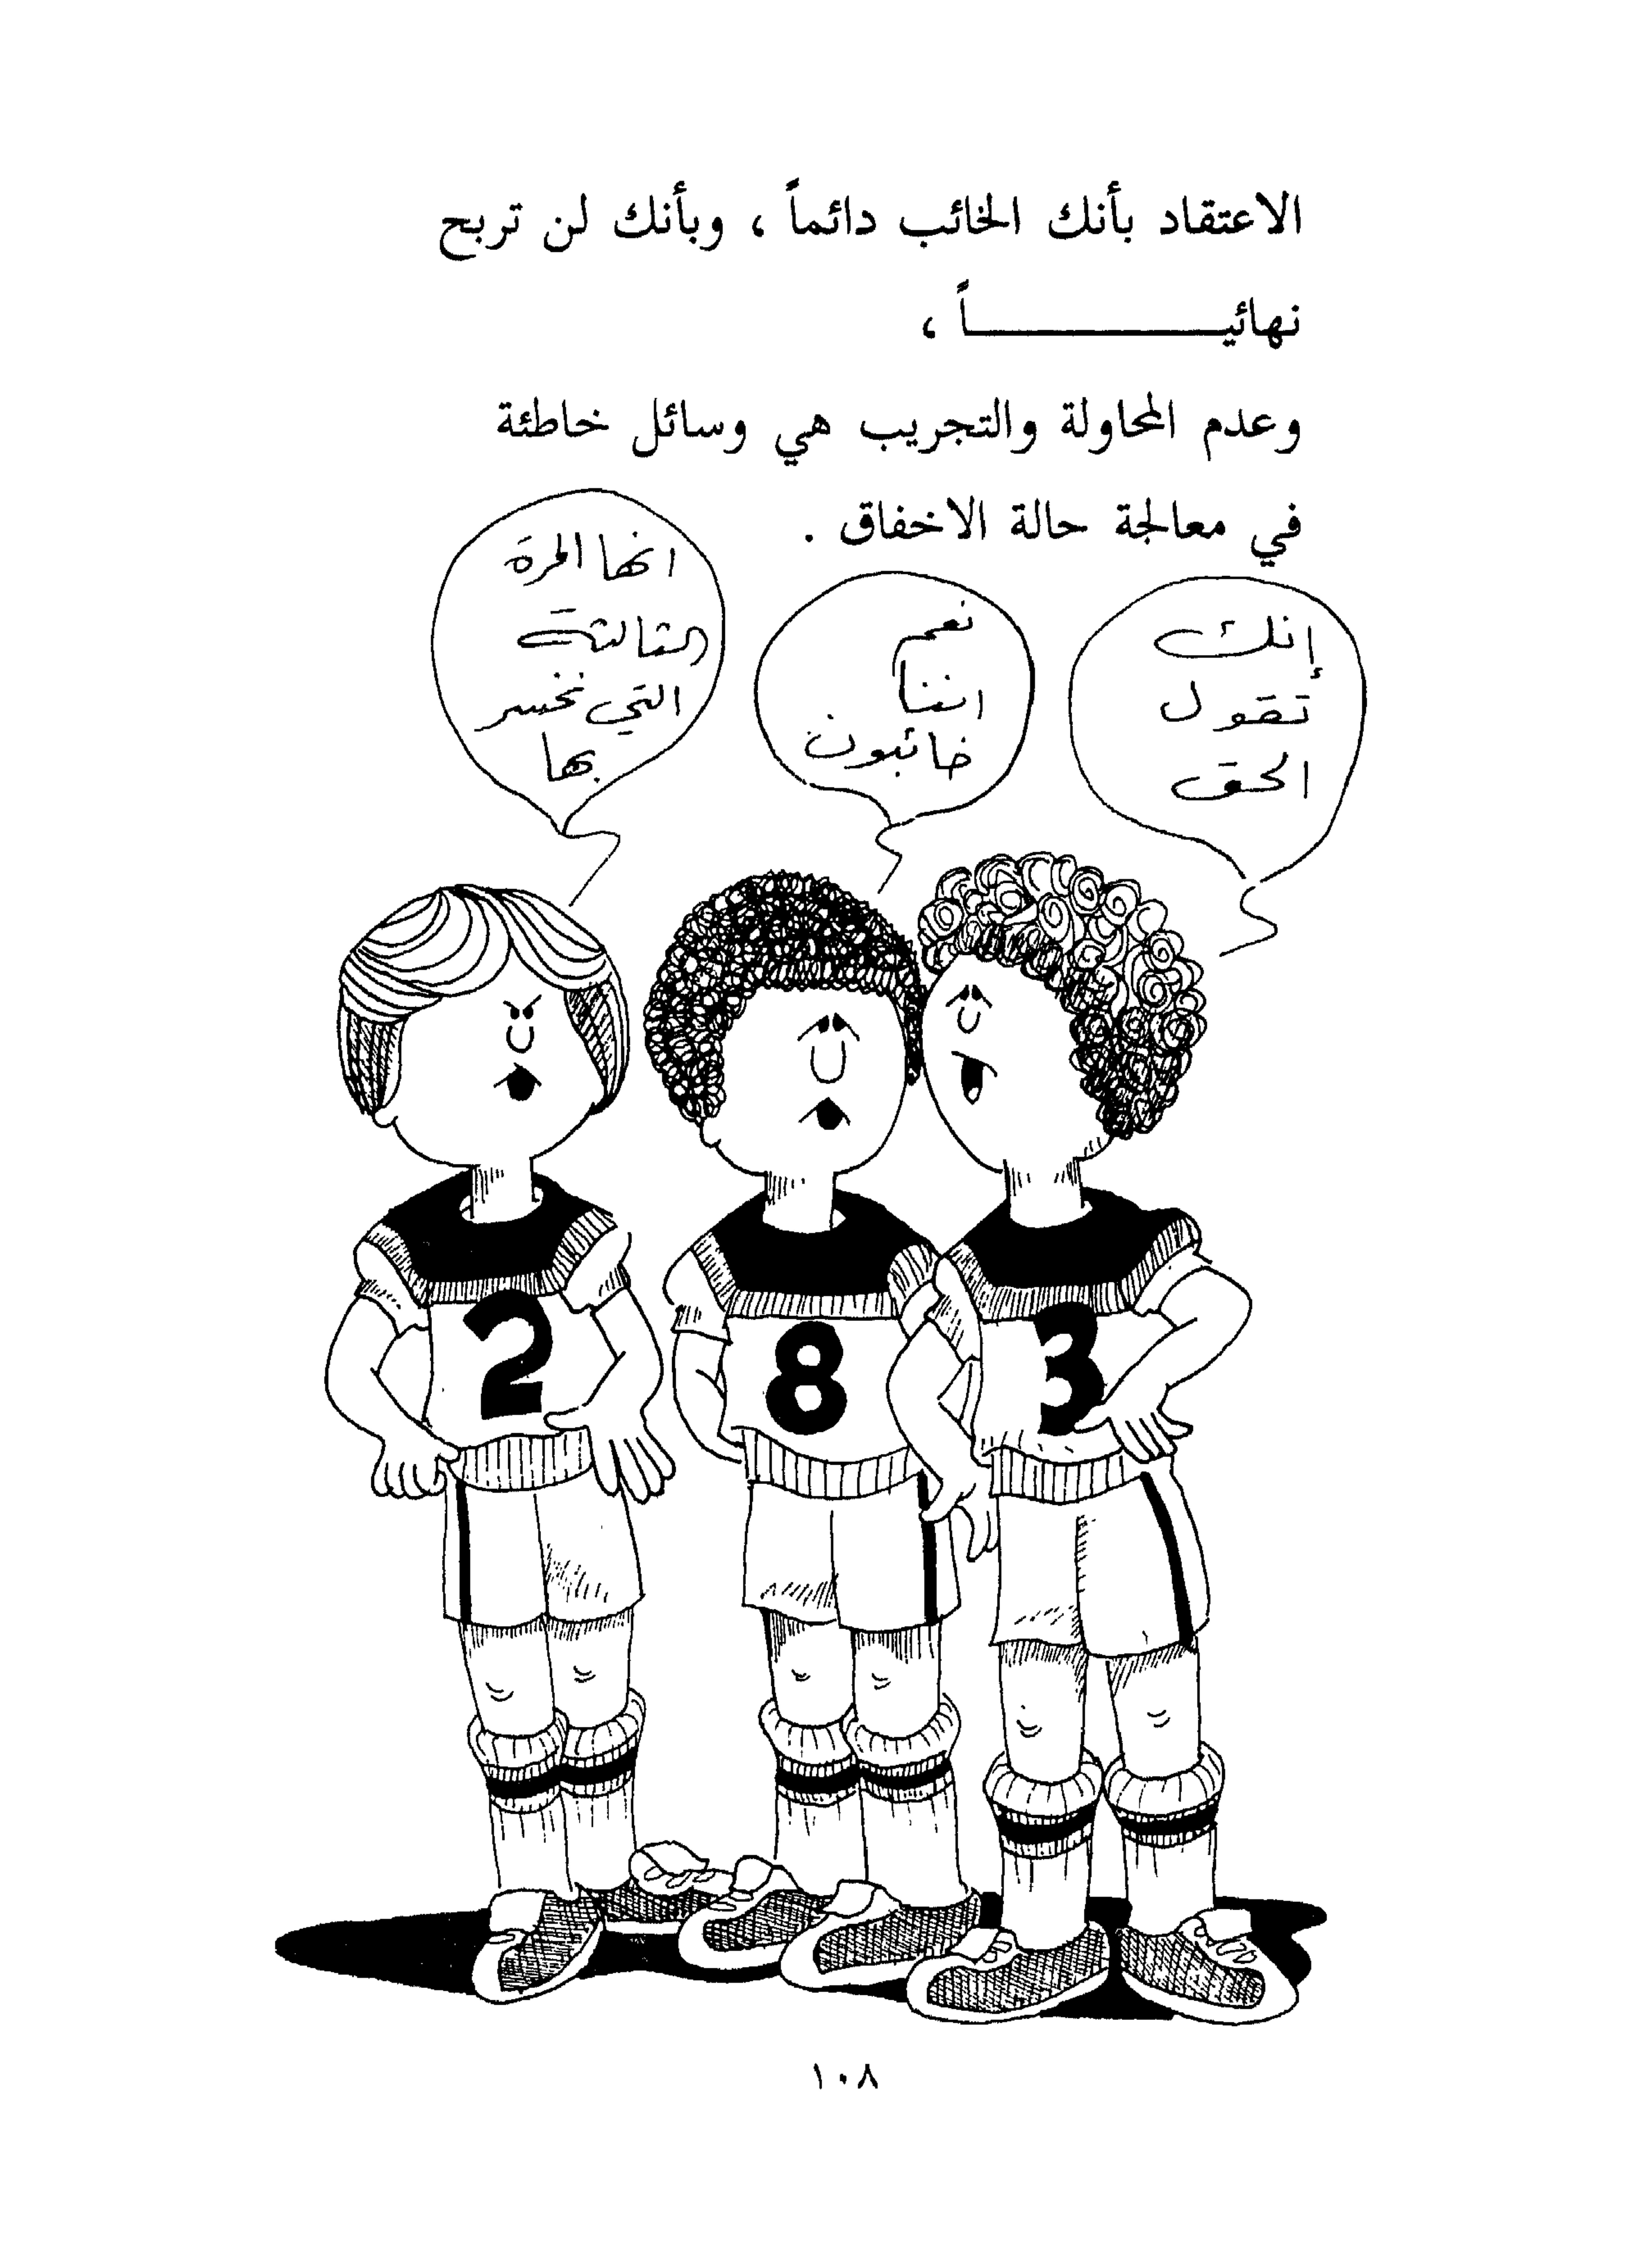 الاعتقاد بأنك الخائب دائماً ، وبأنك لن تربح
نهائيـــــــــــــاً ،
وعدم المحاولة والتجريب هي وسائل خاطئة
في معالجة حالة الاخفاق .
إنك
تقول
الحق
نعم
اننا
خائبون
انها المرة
الثالثة
التي نخسر
بها
2
8
3
١٠٨